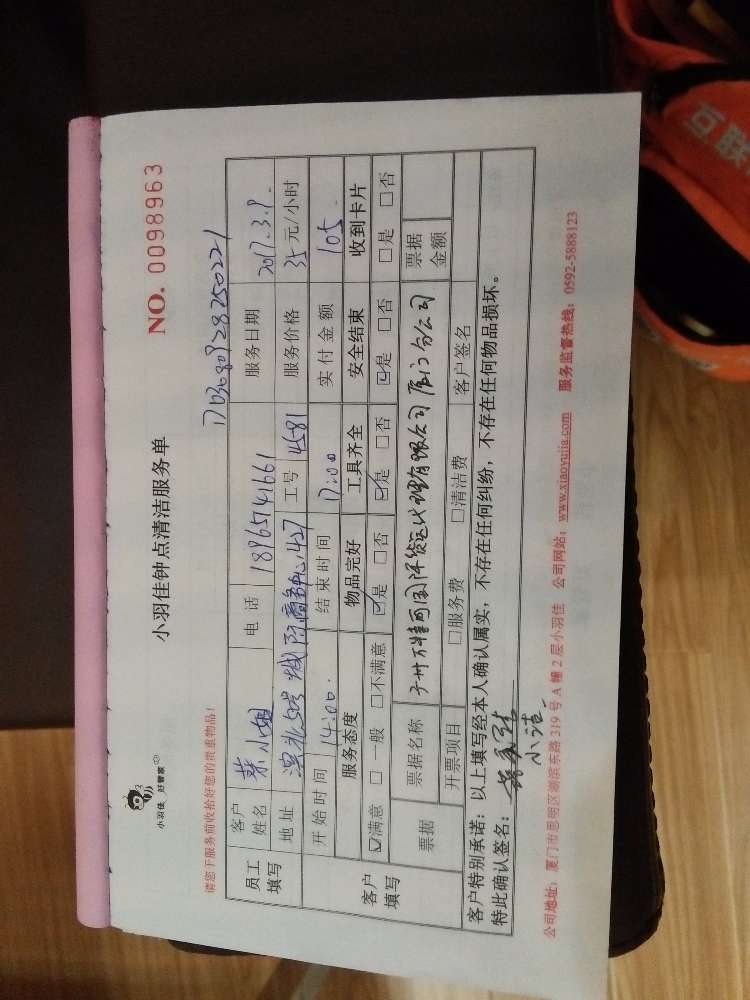 小羽佳 好管家
小羽佳钟点清洁服务单
NO. 0098963
请您于服务前收拾好您的贵重物品!
员工填写
客户姓名 小姐 电话 18965741661 服务日期 2017.3.9.
地址 427 工号 4581 服务价格 35 元/小时
开始时间 14:00. 结束时间 17:00 实付金额 105.
客户填写
服务态度 物品完好 工具齐全 安全结束 收到卡片
☑满意 □一般 □不满意 ☑是 □否 ☑是 □否 ☑是 □否 □是 □否
票据 票据名称 国际货运代理有限公司厦门分公司 票据金额
开票项目 □服务费 □清洁费 客户签名
客户特别承诺:以上填写经本人确认属实,不存在任何纠纷,不存在任何物品损坏。
特此确认签名:
小洁
公司地址:厦门市思明区湖滨东路 319 号 A 幢 2 层小羽佳 公司网站:www.xiaoyujia.com 服务监督热线:0592-5888123
互联